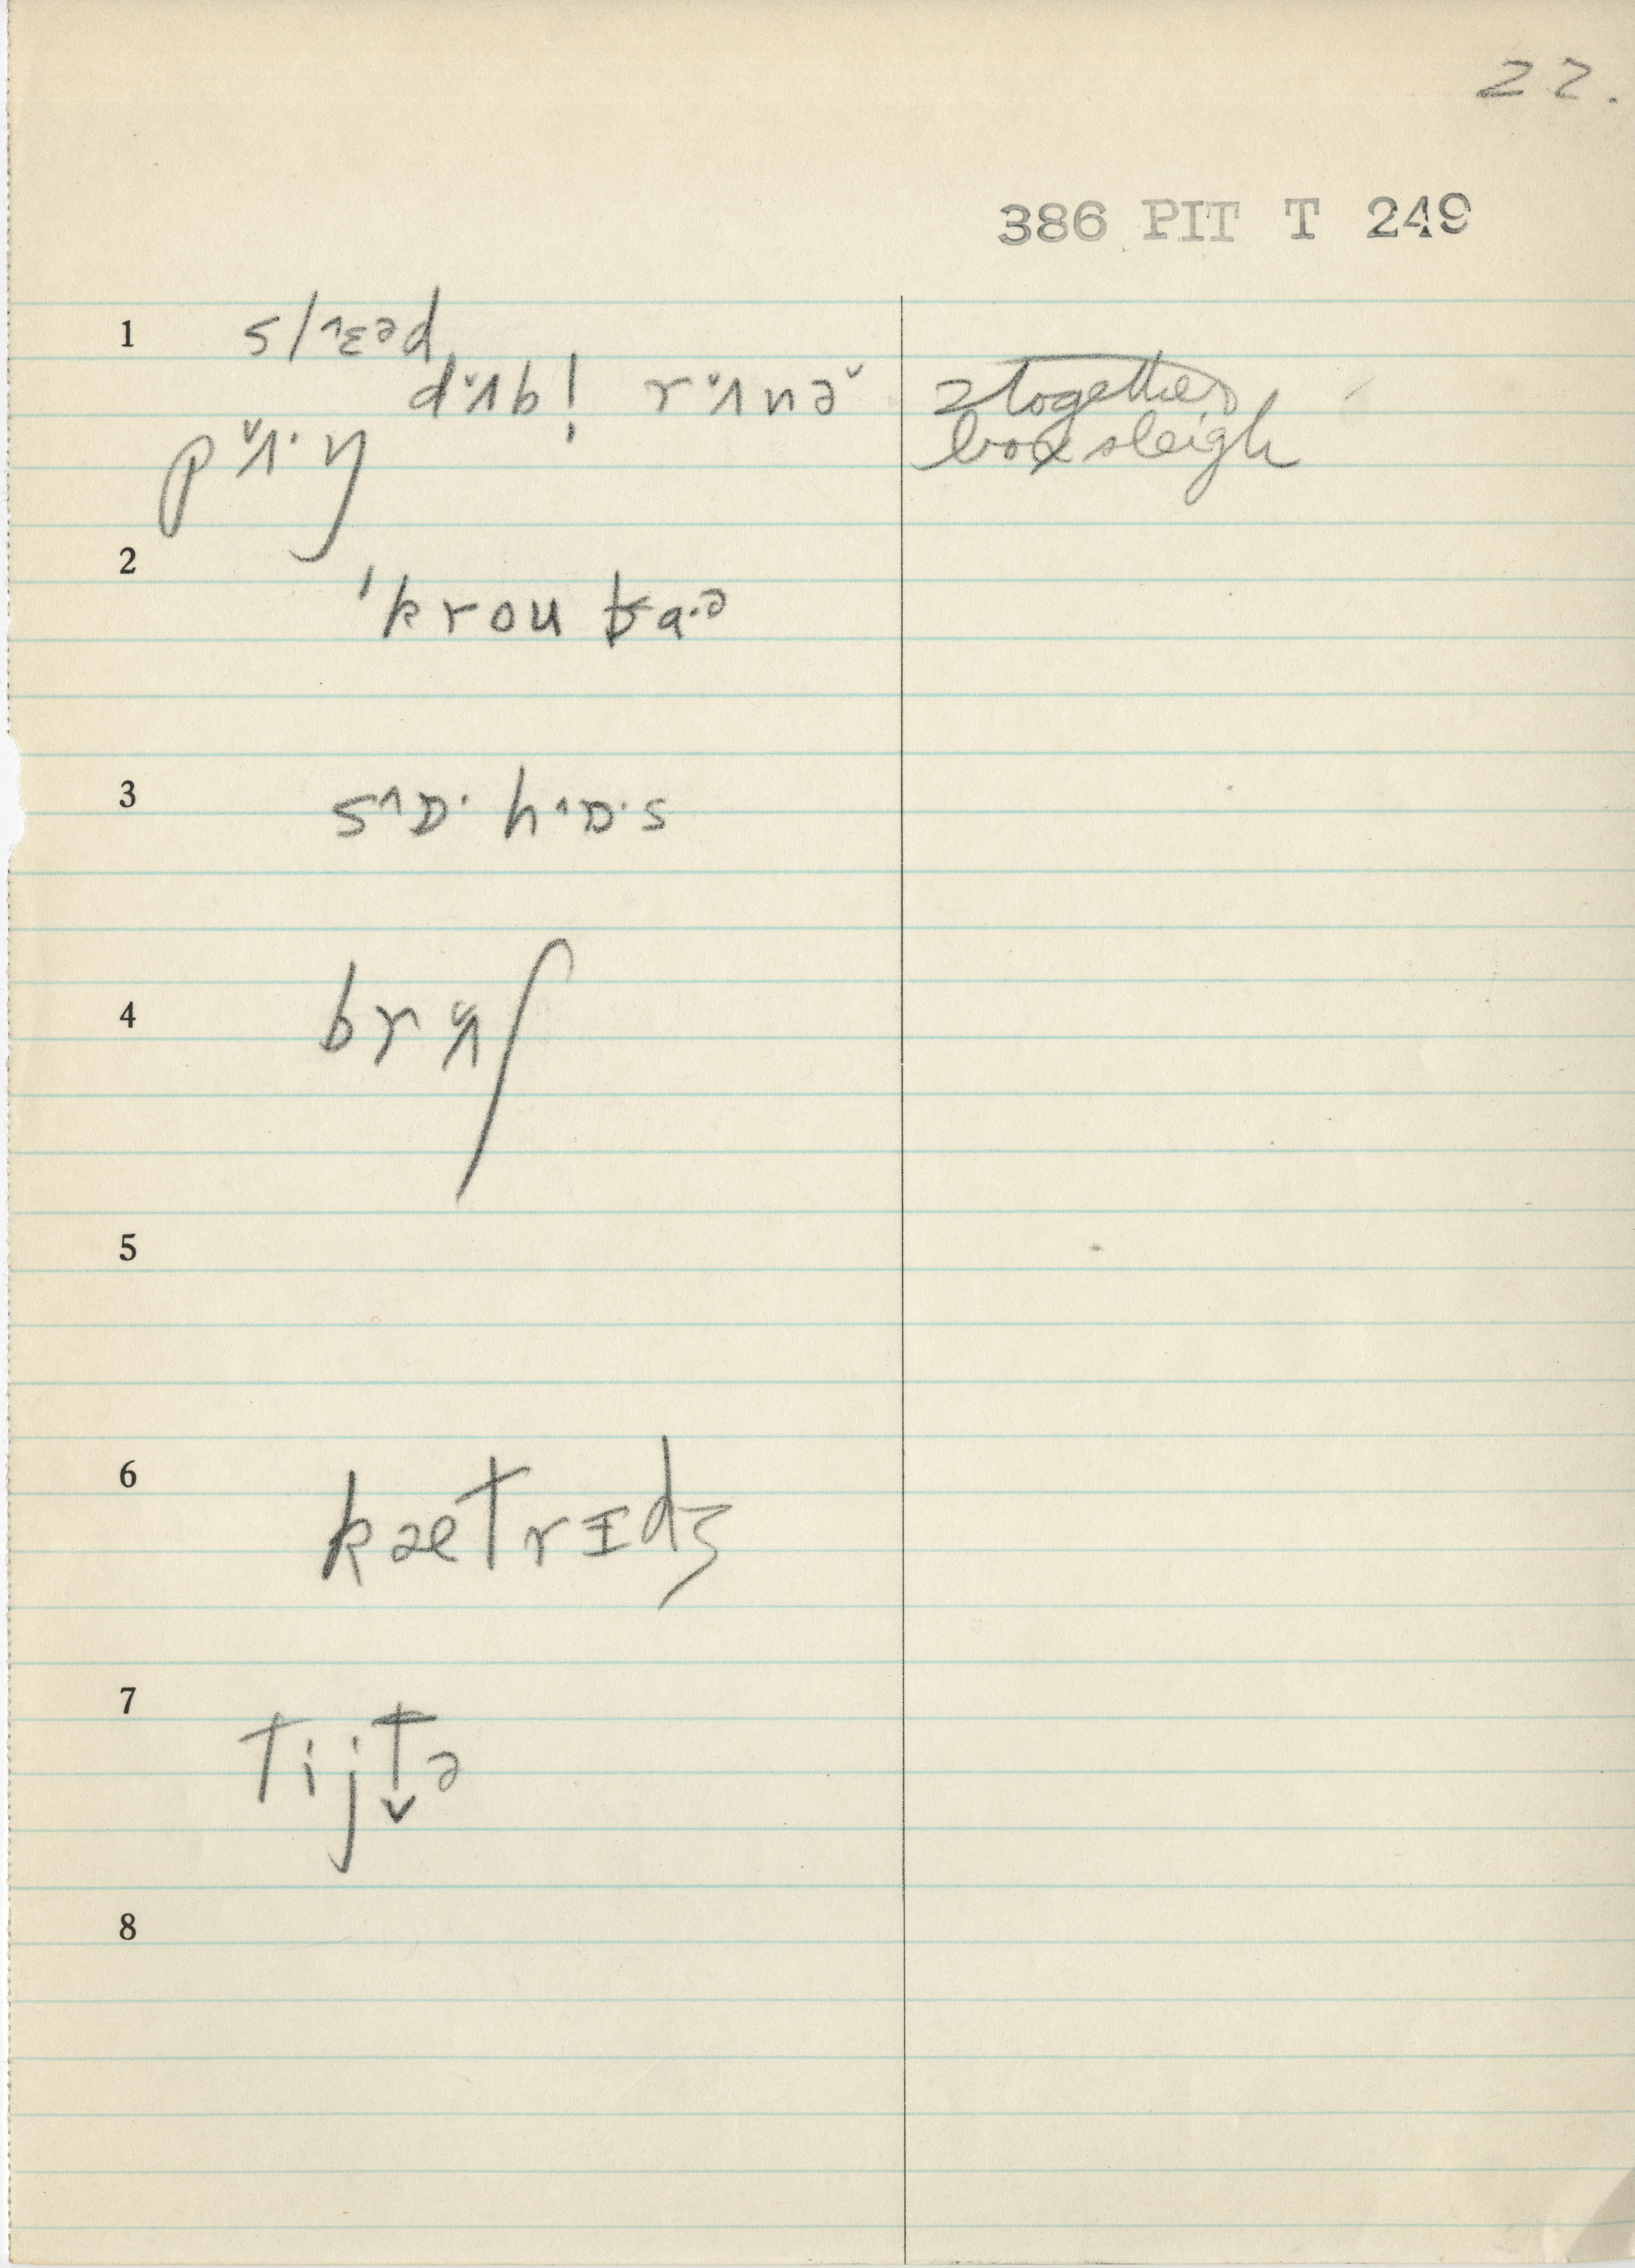 22.
386 PIT T 249
1 sl˄ɛəd
d˅ʌb! r˅ʌnə˅ 2 together
p˅ʌ·ŋ box sleigh
2
ˈkrou ba·ə
3 s˄ɒ· h˄ɒ·s
4 br˅ʌʃ
5
6 kætrɪdʒ
7 tijt̬ə
8